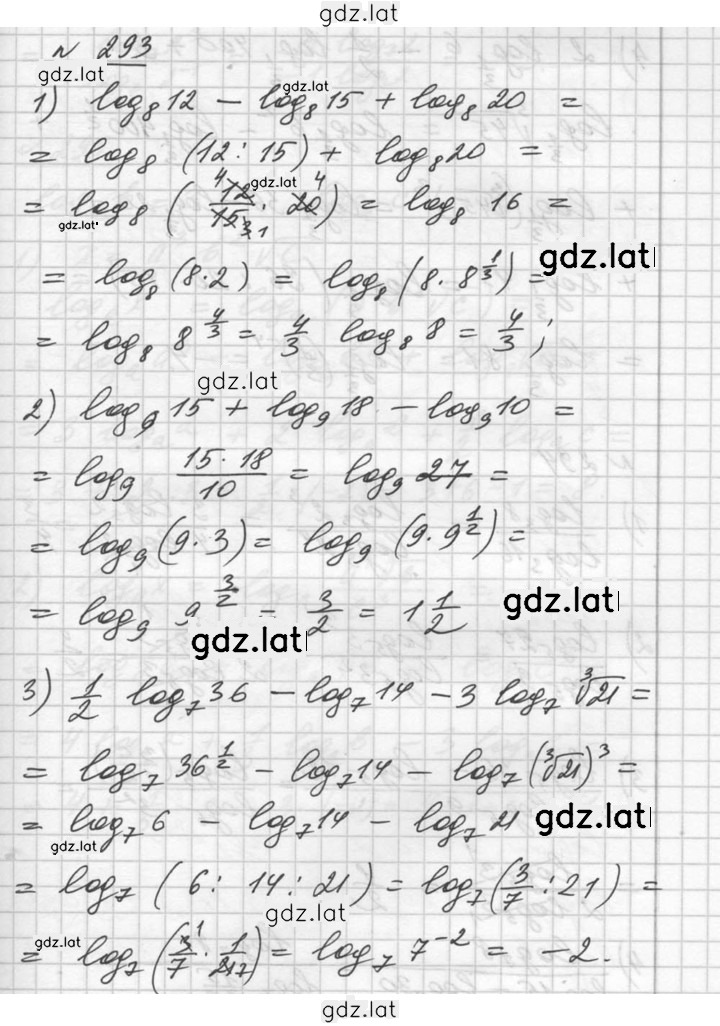 gdz.lat
№ 293
gdz.lat gdz.lat
1) log₈12 − log₈15 + log₈20 =
= log₈ (12 : 15) + log₈20 =
4 gdz.lat 4
= log₈ (12/15 · 20) = log₈ 16 =
gdz.lat 3 1
gdz.lat
= log₈(8·2) = log₈(8·8^(1/3)) =
= log₈ 8^(4/3) = 4/3 log₈8 = 4/3 ;
gdz.lat
2) log₉15 + log₉18 − log₉10 =
= log₉ (15·18)/10 = log₉27 =
= log₉(9·3) = log₉ (9·9^(1/2)) =
= log₉ 9^(3/2) = 3/2 = 1 1/2 gdz.lat
gdz.lat
3) 1/2 log₇36 − log₇14 − 3 log₇ ∛21 =
= log₇36^(1/2) − log₇14 − log₇(∛21)³ =
= log₇6 − log₇14 − log₇21 gdz.lat
gdz.lat
= log₇ (6 : 14 : 21) = log₇(3/7 : 21) =
gdz.lat
gdz.lat 1
= log₇(3/7 · 1/21 7) = log₇ 7⁻² = −2.
gdz.lat